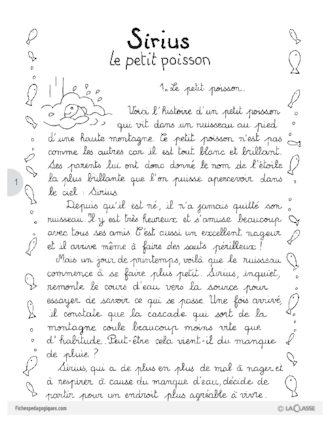 Sirius
Le petit poisson
1. Le petit poisson.
Voici l'histoire d'un petit poisson
qui vit dans un ruisseau au pied
d'une haute montagne. Ce petit poisson n'est pas
comme les autres car il est tout blanc et brillant.
Ses parents lui ont donc donné le nom de l'étoile
la plus brillante que l'on puisse apercevoir dans
le ciel : Sirius.
Depuis qu'il est né, il n'a jamais quitté son
ruisseau. Il y est très heureux et s'amuse beaucoup
avec tous ses amis. C'est aussi un excellent nageur
et il arrive même à faire des sauts périlleux !
Mais un jour de printemps, voilà que le ruisseau
commence à se faire plus petit. Sirius, inquiet,
remonte le cours d'eau vers la source pour
essayer de savoir ce qui se passe. Une fois arrivé,
il constate que la cascade qui sort de la
montagne coule beaucoup moins vite que
d'habitude. Peut-être cela vient-il du manque
de pluie ?
Sirius, qui a de plus en plus de mal à nager et
à respirer à cause du manque d'eau, décide de
partir pour un endroit plus agréable à vivre.
1
Fichespedagogiques.com
© LACLASSE